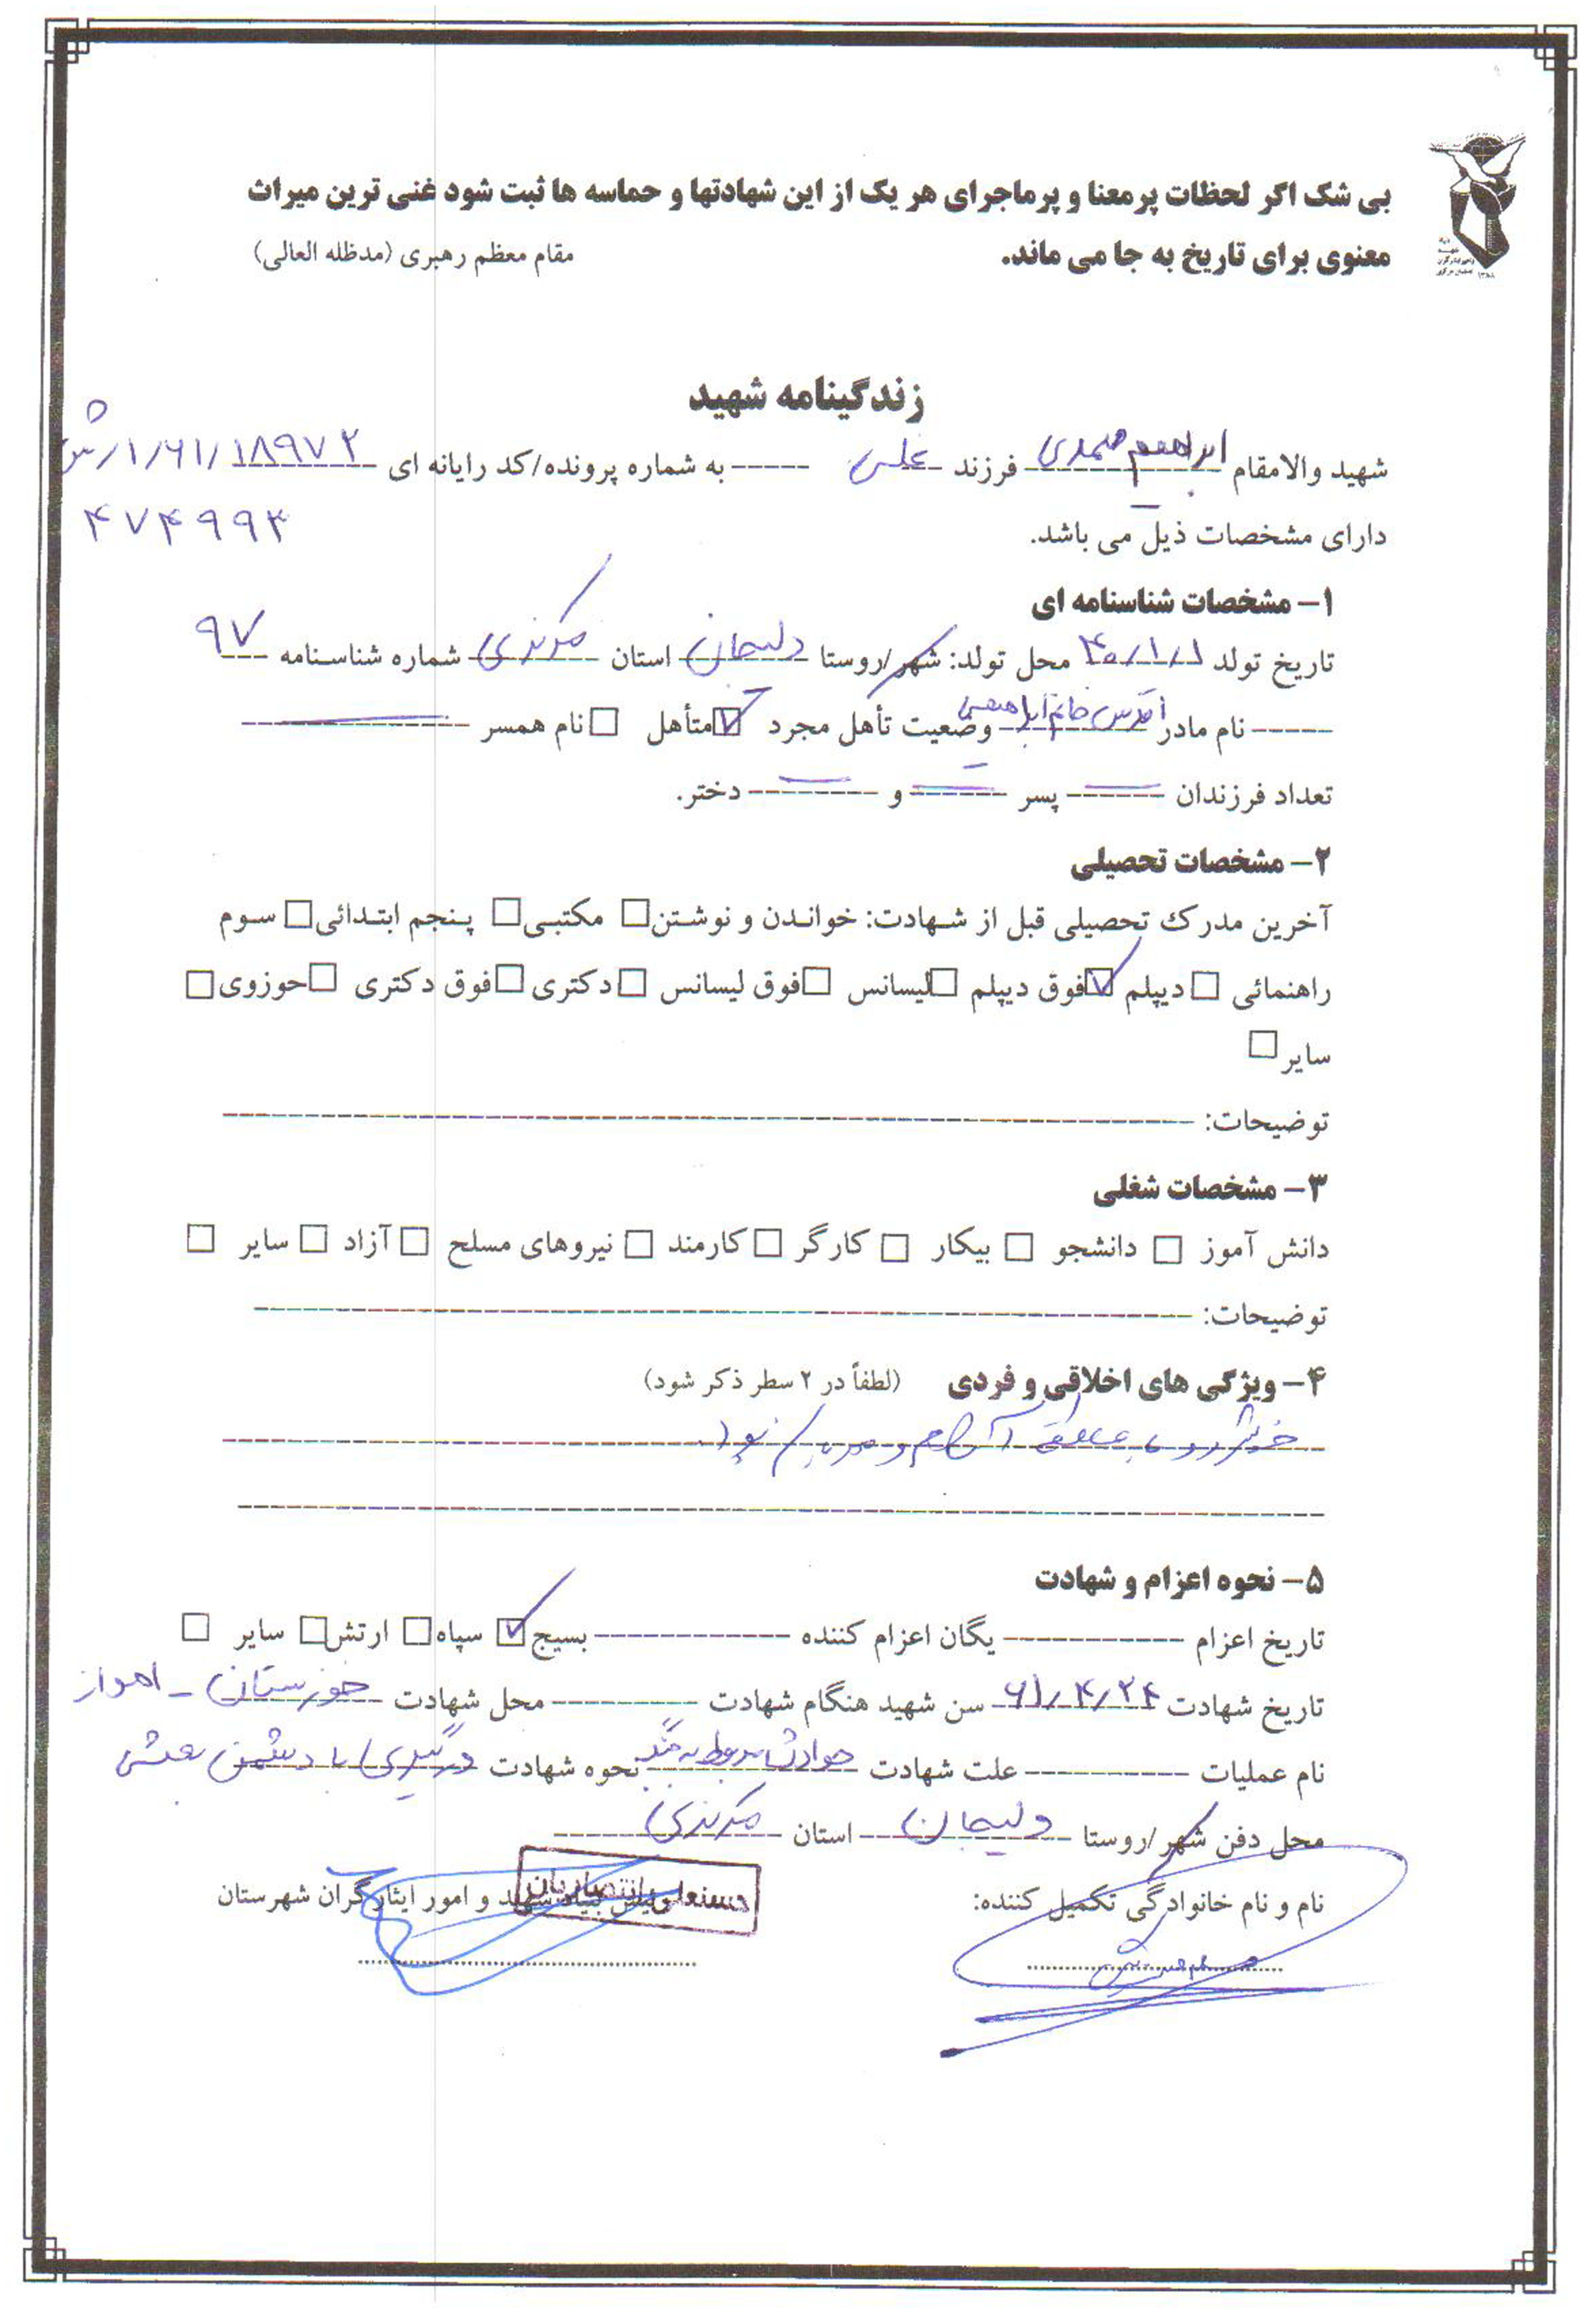 بی شک اگر لحظات پرمعنا و پرماجرای هر یک از این شهادتها و حماسه ها ثبت شود غنی ترین میراث
معنوی برای تاریخ به جا می ماند. مقام معظم رهبری (مدظله العالی)
زندگینامه شهید
شهید والامقام ابراهیم محمدی فرزند علی به شماره پرونده/کد رایانه ای ۱/۶۱/۱۸۹۷۲/ش
۴۷۴۹۹۳
دارای مشخصات ذیل می باشد.
۱- مشخصات شناسنامه ای
تاریخ تولد ۴۰/۱/۱ محل تولد: شهر/روستا دلیجان استان مرکزی شماره شناسنامه ۹۷
نام مادر اقدس خانم ابراهیمی وضعیت تأهل مجرد ☑ متأهل □ نام همسر
تعداد فرزندان پسر و دختر.
۲- مشخصات تحصیلی
آخرین مدرک تحصیلی قبل از شهادت: خواندن و نوشتن □ مکتبی □ پنجم ابتدائی □ سوم
راهنمائی □ دیپلم ☑ فوق دیپلم □ لیسانس □ فوق لیسانس □ دکتری □ فوق دکتری □ حوزوی □
سایر □
توضیحات:
۳- مشخصات شغلی
دانش آموز □ دانشجو □ بیکار □ کارگر □ کارمند □ نیروهای مسلح □ آزاد □ سایر □
توضیحات:
۴- ویژگی های اخلاقی و فردی (لطفاً در ۲ سطر ذکر شود)
آرام و مهربان بود.
۵- نحوه اعزام و شهادت
تاریخ اعزام یگان اعزام کننده بسیج ☑ سپاه □ ارتش □ سایر □
تاریخ شهادت ۶۱/۴/۲۴ سن شهید هنگام شهادت محل شهادت خوزستان - اهواز
نام عملیات علت شهادت حوادث مربوط به جنگ نحوه شهادت درگیری با دشمن بعثی
محل دفن شهر/روستا دلیجان استان مرکزی
نام و نام خانوادگی تکمیل کننده: شهید و امور ایثارگران شهرستان